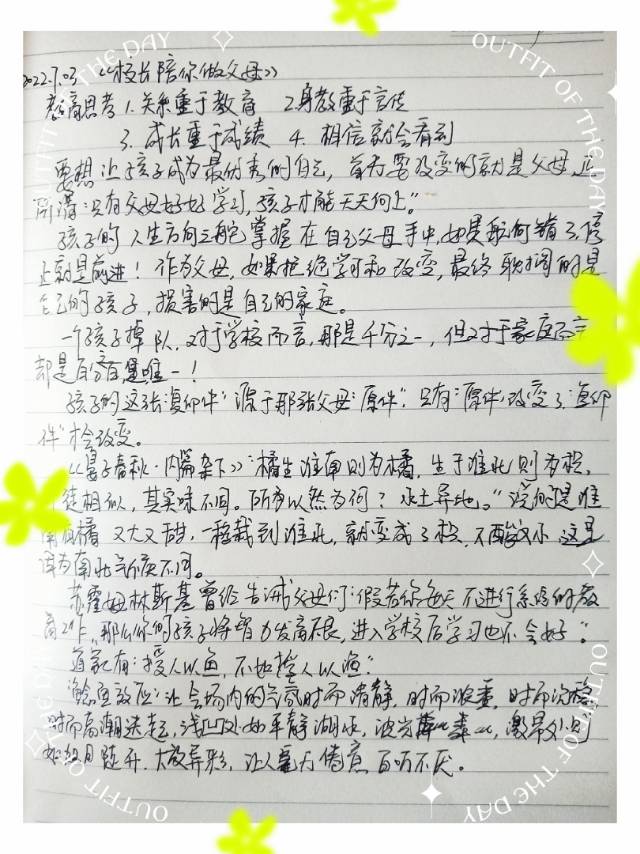 OUTFIT OF THE DAY
OUTFIT OF THE DAY
2022.7.03 《校长陪你做父母》
教育思考 1. 关系重于教育 2. 身教重于言传
3. 成长重于成绩 4. 相信就会看到
要想让孩子成为最优秀的自己，首先要改变的就是父母，正
所谓：只有父母好好学习，孩子才能天天向上。”
孩子的人生方向之舵掌握在自己父母手中，如果航向错了，停
止就是前进！作为父母，如果拒绝学习和改变，最终耽搁的是
自己的孩子，损害的是自己的家庭。
一个孩子掉队，对于学校而言，那是千分之一，但对于家庭而言
却是百分百是唯一！
孩子的这张“复印件”源于那张父母“原件”。只有“原件”改变了，“复印
件”才会改变。
《晏子春秋·内篇杂下》：“橘生淮南则为橘，生于淮北则为枳，
叶徒相似，其实味不同。所以然为何？水土异也。”说的是淮
南有橘又大又甜，一移栽到淮北，就变成了枳，不酸又小，这是
因为南北气质不同。
苏霍姆林斯基曾经告诫父母们：“假若你每天不进行系统的教
育工作，那么你的孩子将智力发育不良，进入学校后学习也不会好”。
道家有：“授人以鱼，不如授人以渔”
鲶鱼效应：让会场内的气氛时而清静，时而凝重，时而沉稳
时而高潮迭起，浅凹处如平静湖水，波光，激昂处则
如红日跃升，大放异彩，让人毫无倦意，百听不厌。
OUTFIT OF THE DAY
OUTFIT OF THE DAY